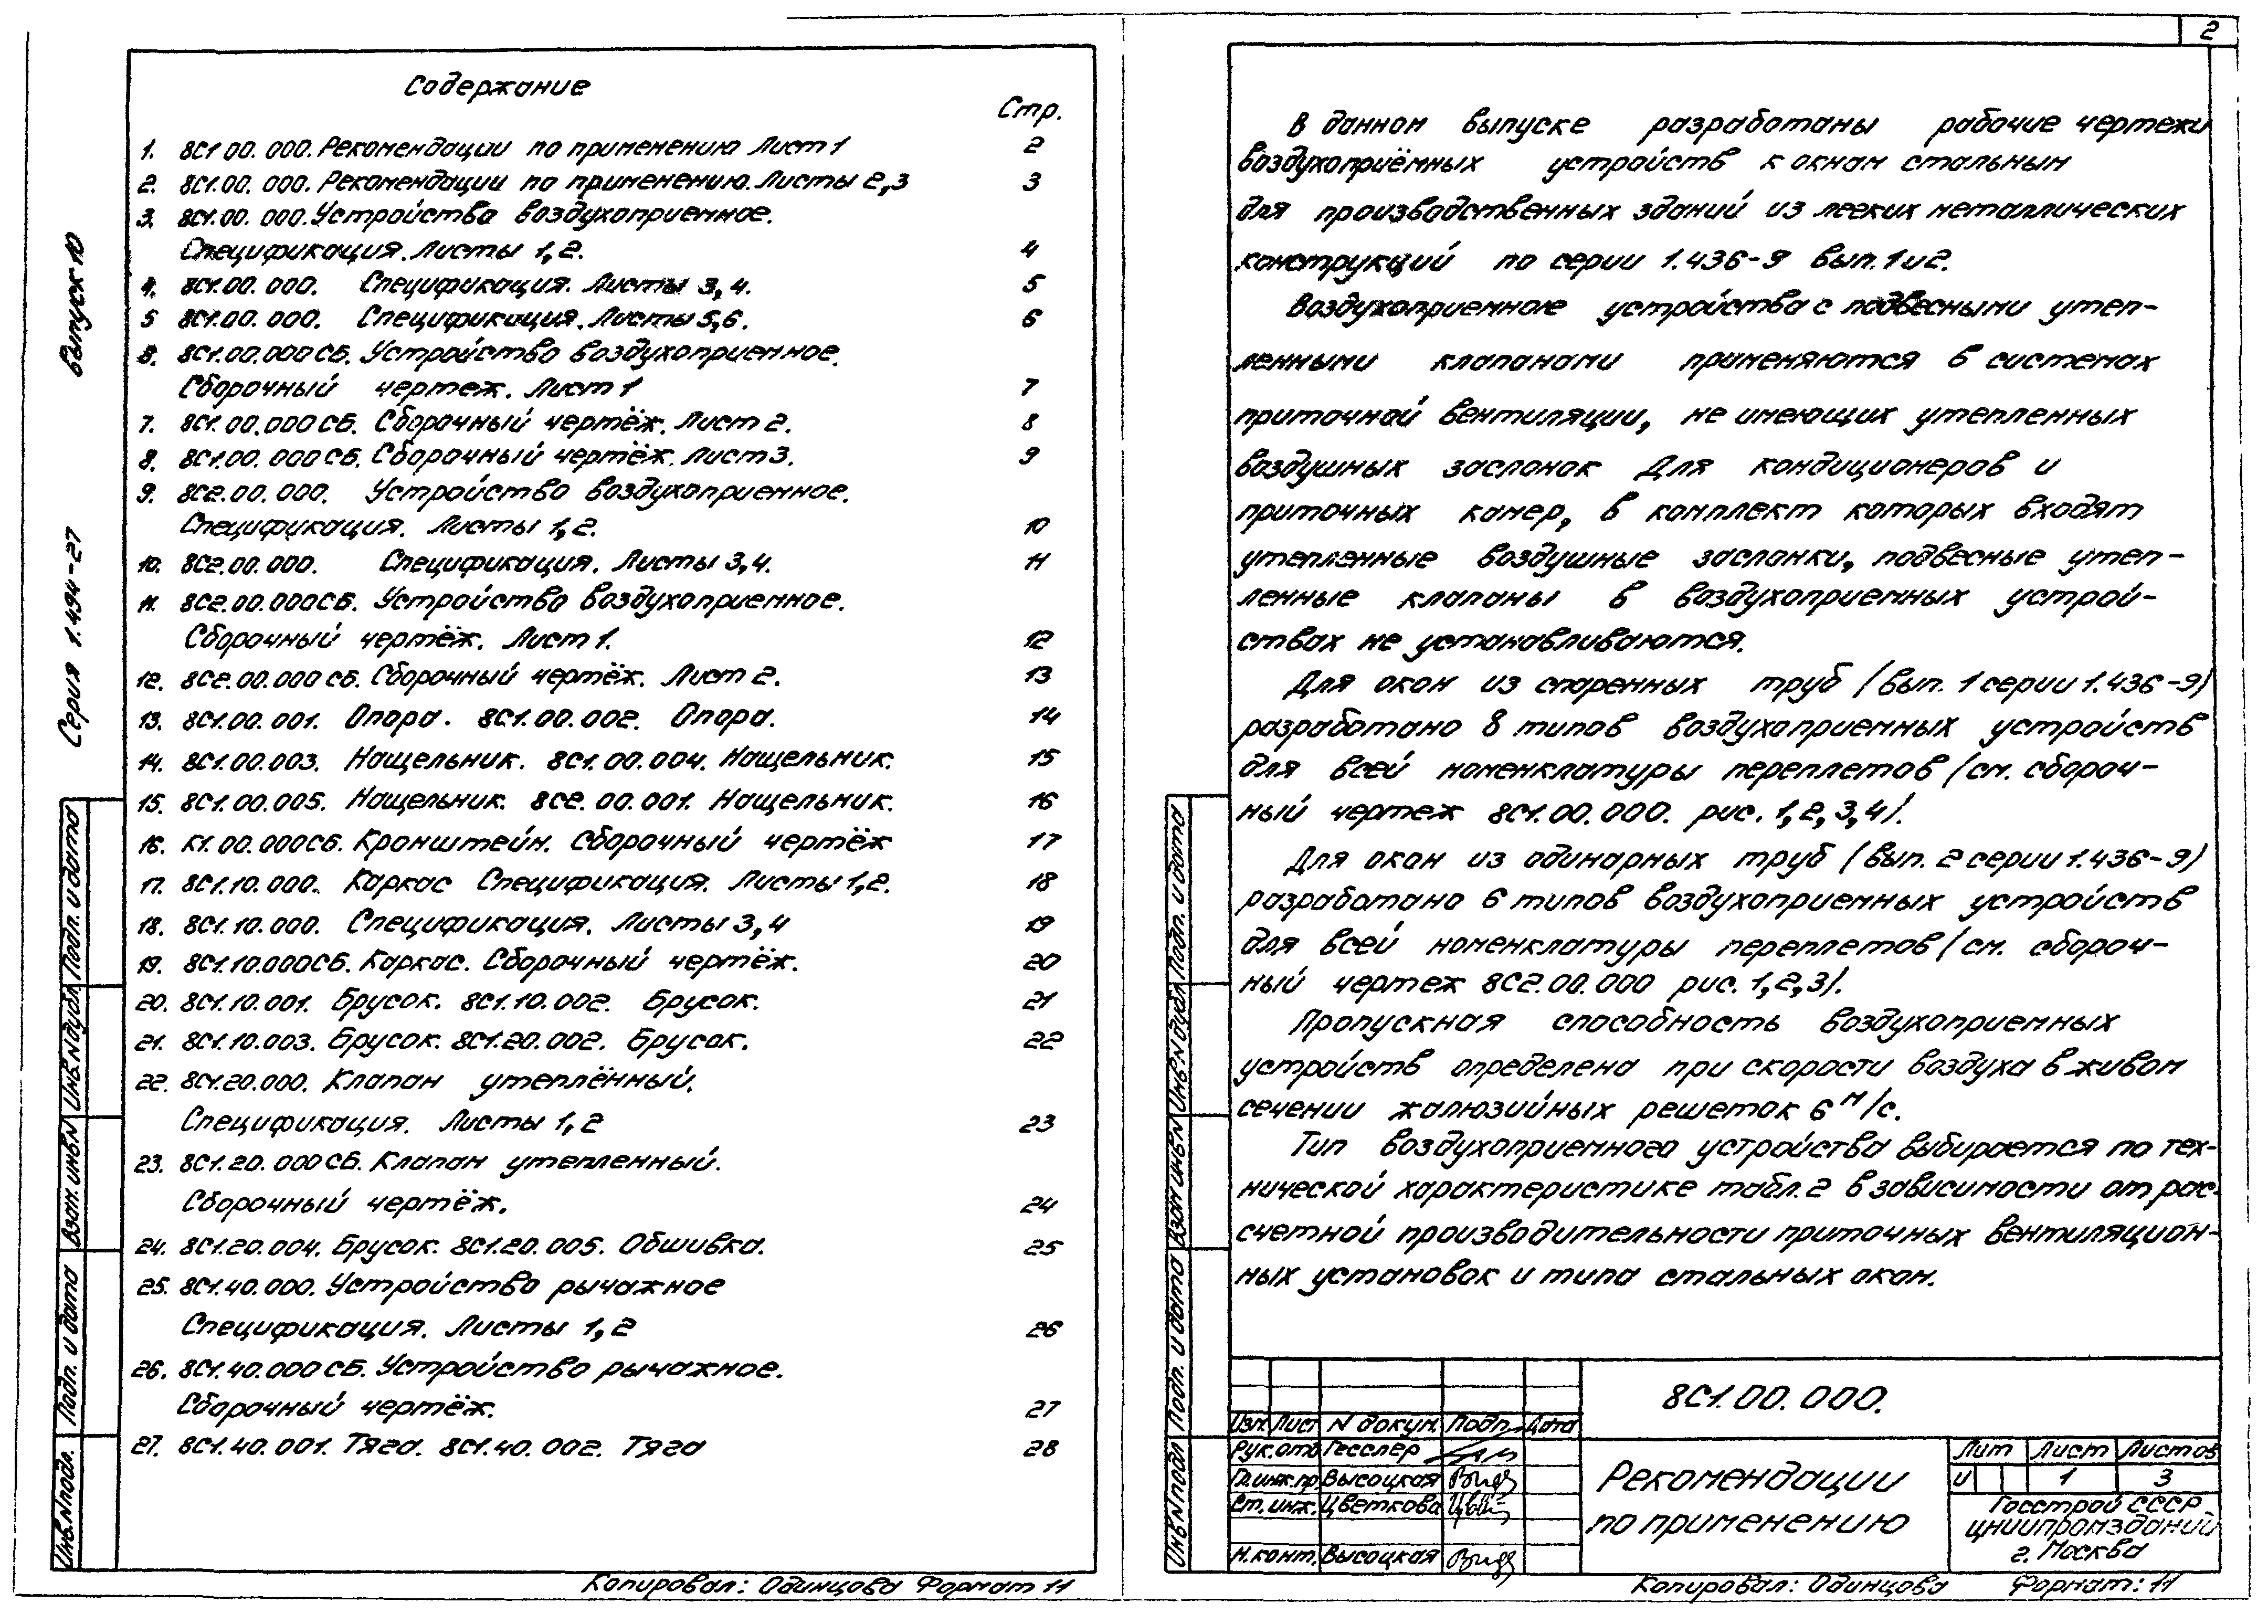 2
Содержание
Стр.
1. 8С1 00. 000. Рекомендации по применению Лист 1 2
2. 8С1.00. 000. Рекомендации по применению. Листы 2,3 3
3. 8С1.00. 000. Устройства воздухоприемное.
Спецификация. Листы 1, 2. 4
4. 8С1.00. 000. Спецификация. Листы 3, 4. 5
5 8С1.00. 000. Спецификация. Листы 5,6. 6
6. 8С1.00.000СБ. Устройство воздухоприемное.
Сборочный чертеж. Лист 1 7
7. 8С1.00.000СБ. Сборочный чертёж. Лист 2. 8
8. 8С1.00.000СБ. Сборочный чертёж. Лист 3. 9
9. 8С2.00.000. Устройство воздухоприемное.
Спецификация. Листы 1, 2. 10
10. 8С2.00.000. Спецификация. Листы 3,4. 11
11. 8С2.00.000СБ. Устройство воздухоприемное.
Сборочный чертёж. Лист 1. 12
12. 8С2.00.000СБ. Сборочный чертёж. Лист 2. 13
13. 8С1.00.001. Опора. 8С1.00.002. Опора. 14
14. 8С1.00.003. Нащельник. 8С1.00.004. Нащельник. 15
15. 8С1.00.005. Нащельник. 8С2.00.001. Нащельник. 16
16. К1.00.000СБ. Кронштейн. Сборочный чертёж 17
17. 8С1.10.000. Каркас Спецификация. Листы 1,2. 18
18. 8С1.10.000. Спецификация. Листы 3,4 19
19. 8С1.10.000СБ. Каркас. Сборочный чертёж. 20
20. 8С1.10.001. Брусок. 8С1.10.002. Брусок. 21
21. 8С1.10.003. Брусок. 8С1.20.002. Брусок. 22
22. 8С1.20.000. Клапан утеплённый.
Спецификация. Листы 1,2 23
23. 8С1.20.000СБ. Клапан утепленный.
Сборочный чертёж. 24
24. 8С1.20.004. Брусок. 8С1.20.005. Обшивка. 25
25. 8С1.40.000. Устройство рычажное
Спецификация. Листы 1,2 26
26. 8С1.40.000СБ. Устройство рычажное.
Сборочный чертёж. 27
27. 8С1.40.001. Тяга. 8С1.40.002. Тяга 28
Серия 1.494-27 выпуск 10
Инв.N подл. Подп. и дата Взам. инв.N Инв.N дубл. Подп. и дата
Копировал: Одинцова Формат 11
В данном выпуске разработаны рабочие чертежи
воздухоприёмных устройств к окнам стальным
для производственных зданий из легких металлических
конструкций по серии 1.436-9 вып.1 и 2.
Воздухоприемные устройства с подвесными утеп-
ленными клапанами применяются в системах
приточной вентиляции, не имеющих утепленных
воздушных заслонок Для кондиционеров и
приточных камер, в комплект которых входят
утепленные воздушные заслонки, подвесные утеп-
ленные клапаны в воздухоприемных устрой-
ствах не устанавливаются.
Для окон из спаренных труб (вып. 1 серии 1.436-9)
разработано 8 типов воздухоприемных устройств
для всей номенклатуры переплетов (см. сбороч-
ный чертеж 8С1.00.000. рис. 1,2,3,4).
Для окон из одинарных труб (вып. 2 серии 1.436-9)
разработано 6 типов воздухоприемных устройств
для всей номенклатуры переплетов (см. сбороч-
ный чертеж 8С2.00.000 рис. 1,2,3).
Пропускная способность воздухоприемных
устройств определена при скорости воздуха в живом
сечении жалюзийных решеток 6 м/с.
Тип воздухоприемного устройства выбирается по тех-
нической характеристике табл. 2 в зависимости от рас-
счетной производительности приточных вентиляцион-
ных установок и типа стальных окон.
Инв.N подл Подп. и дата Взам инв.N Инв.N дубл Подп. и дата
8С1.00.000.
Изм. Лист N докум. Подп. Дата
Рук.отд Гесслер
Гл.инж.пр. Высоцкая
Ст.инж. Цветкова
Н.конт. Высоцкая
Рекомендации
по применению
Лит Лист Листов
И 1 3
Госстрой СССР
ЦНИИПРОМЗДАНИЙ
г. Москва
Копировал: Одинцова Формат: 11